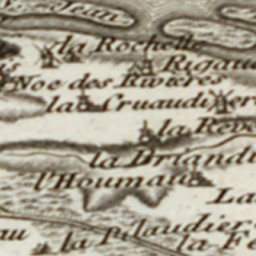 Jean
la Rochelle
Rigaud
Noe des Rivieres
la Cruaudier
la Reve
la Driandi
l'Houmau
La
la Pilaudier
au
la Fe